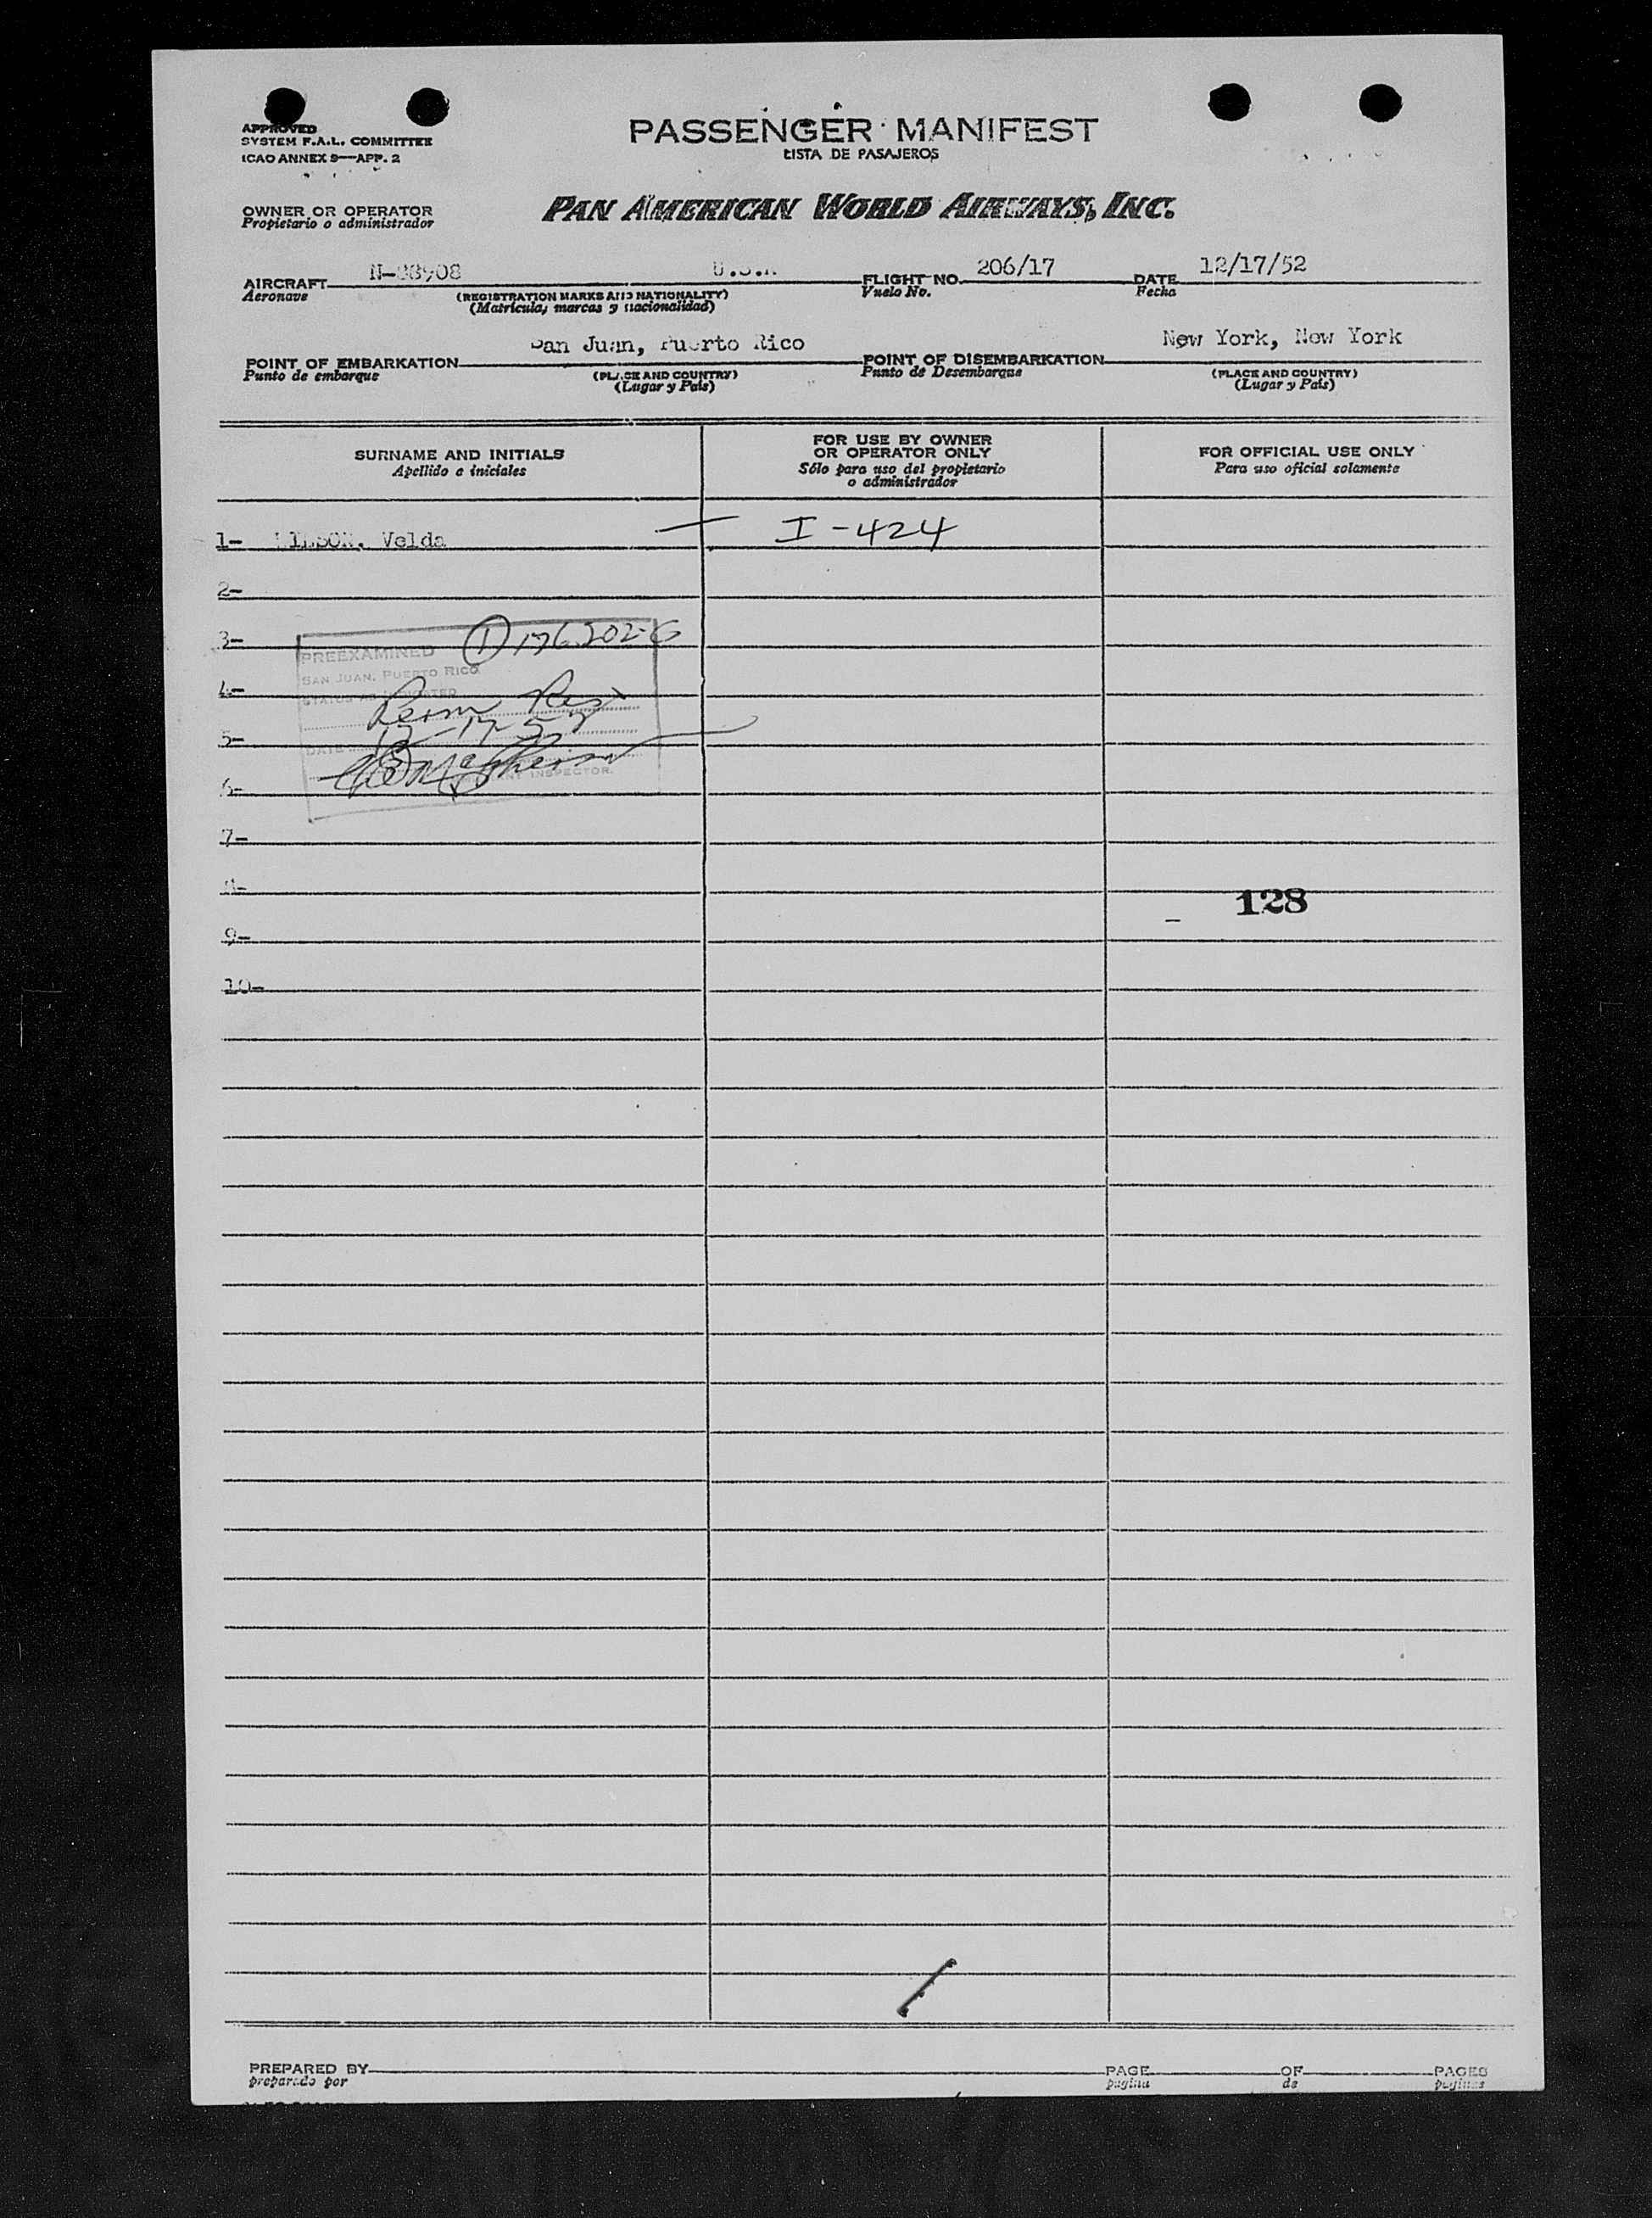 APPROVED
SYSTEM F.A.L. COMMITTEE
ICAO ANNEX 9—APP. 2
PASSENGER MANIFEST
LISTA DE PASAJEROS
OWNER OR OPERATOR
Propietario o administrador
PAN AMERICAN WORLD AIRWAYS, INC.
AIRCRAFT N-88908 U.S.A FLIGHT NO. 206/17 DATE 12/17/52
Aeronave (REGISTRATION MARKS AND NATIONALITY) Vuelo No. Fecha
(Matrícula, marcas y nacionalidad)
POINT OF EMBARKATION San Juan, Puerto Rico POINT OF DISEMBARKATION New York, New York
Punto de embarque (PLACE AND COUNTRY) Punto de Desembarque (PLACE AND COUNTRY)
(Lugar y País) (Lugar y País)
SURNAME AND INITIALS
Apellido e iniciales
FOR USE BY OWNER
OR OPERATOR ONLY
Sólo para uso del propietario
o administrador
FOR OFFICIAL USE ONLY
Para uso oficial solamente
1- Velda — I-424
2-
3-
PREEXAMINED
SAN JUAN, PUERTO RICO
4-
Perm Res
5-
DATE 12-17-52
INSPECTOR.
6-
7-
8-
128
9-
10-
PREPARED BY PAGE OF PAGES
preparado por pagina de paginas